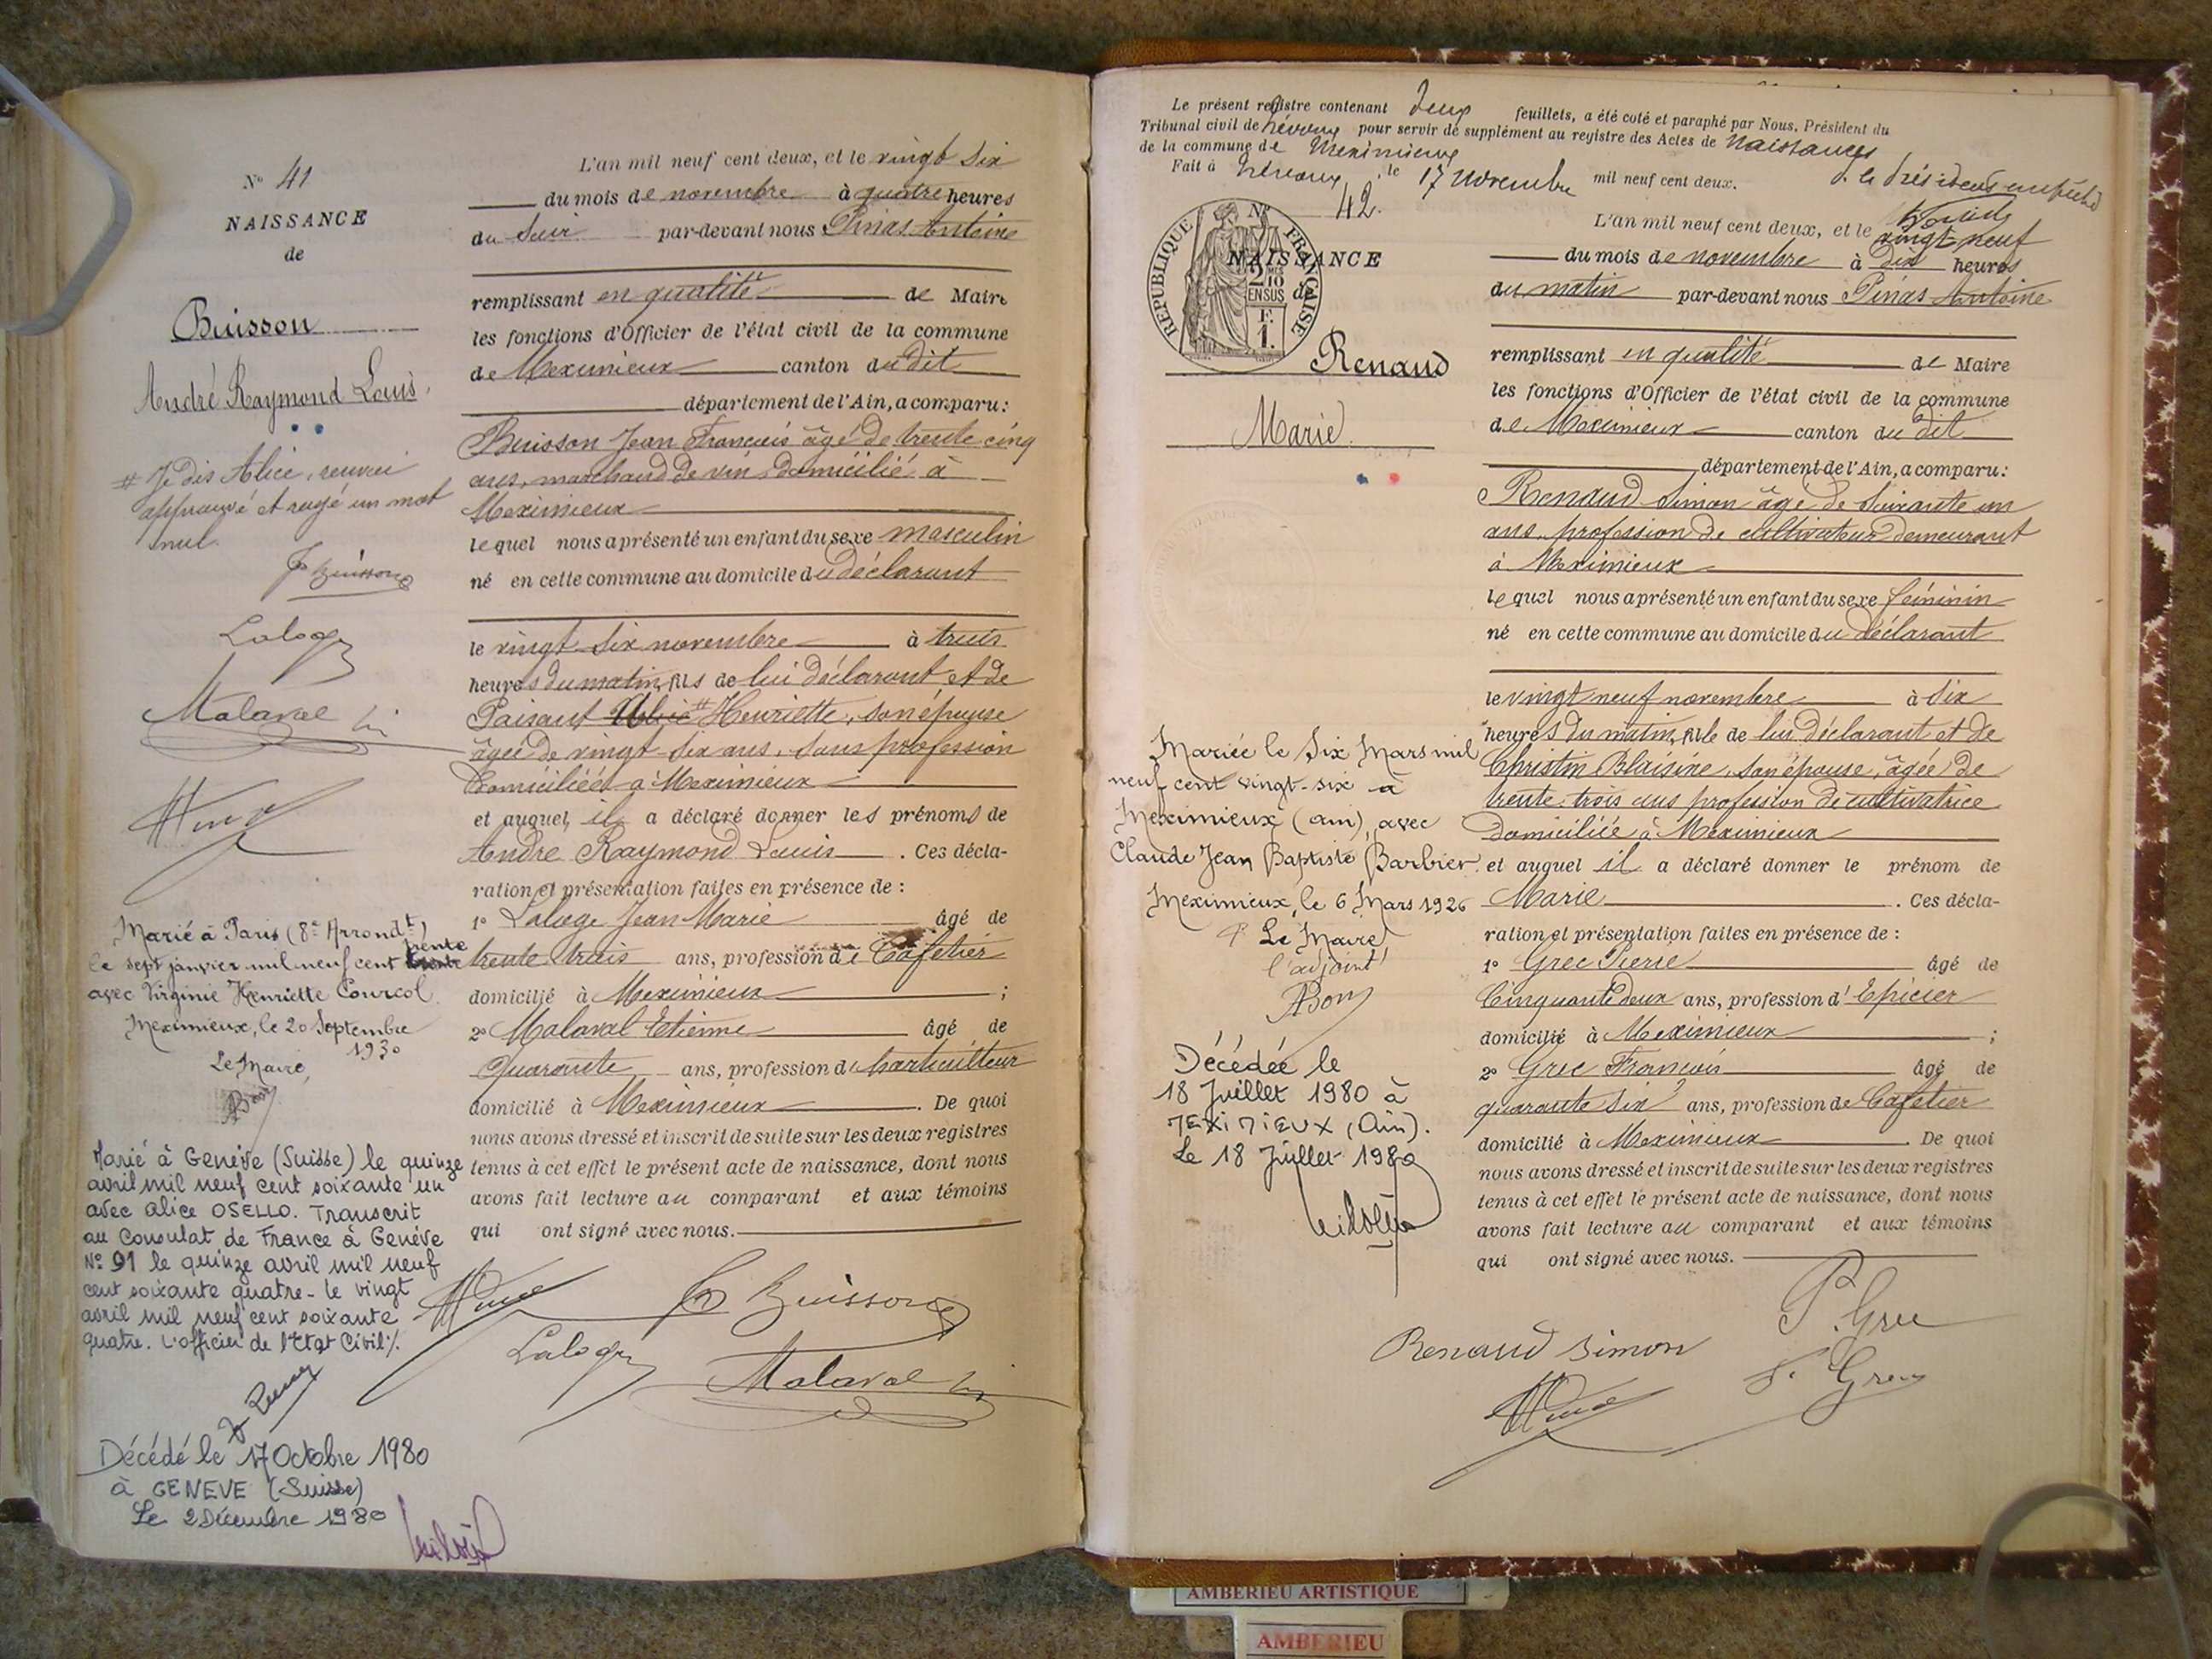 N° 41
NAISSANCE
de
Buisson
André Raymond Louis
# Je dis Alice, renvoi
approuvé et rayé un mot
nul
J Buisson
Laloge
Malaval
Marié à Paris (8e Arrondt)
le sept janvier mil neuf cent trente
avec Virginie Henriette Courcol
Meximieux, le 20 Septembre
1930
Le Maire,
Marié à Genève (Suisse) le quinze
avril mil neuf cent soixante un
avec Alice OSELLO. Transcrit
au Consulat de France à Genève
N° 91 le quinze avril mil neuf
cent soixante quatre - le vingt
avril mil neuf cent soixante
quatre. L'officier de l'Etat Civil %.
Décédé le 17 Octobre 1980
à GENEVE (Suisse)
Le 2 Décembre 1980
L'an mil neuf cent deux, et le vingt six
du mois de novembre à quatre heures
du soir par-devant nous Pinas Antoine
remplissant en qualité de Maire
les fonctions d'Officier de l'état civil de la commune
de Meximieux canton du dit
département de l'Ain, a comparu:
Buisson Jean François âgé de trente cinq
ans, marchand de vin domicilié à
Meximieux
lequel nous a présenté un enfant du sexe masculin
né en cette commune au domicile du déclarant
le vingt six novembre à trois
heures du matin, fils de lui déclarant et de
Paisant # Henriette, son épouse
âgée de vingt six ans, sans profession
domiciliée à Meximieux
et auquel il a déclaré donner les prénoms de
André Raymond Louis. Ces décla-
ration et présentation faites en présence de :
1° Laloge Jean Marie âgé de
trente trois ans, profession de Cafetier
domicilié à Meximieux ;
2° Malaval Etienne âgé de
Quarante ans, profession d'horticulteur
domicilié à Meximieux. De quoi
nous avons dressé et inscrit de suite sur les deux registres
tenus à cet effet le présent acte de naissance, dont nous
avons fait lecture au comparant et aux témoins
qui ont signé avec nous.
J Buisson
Laloge
Malaval
Le présent registre contenant deux feuillets, a été coté et paraphé par Nous, Président du
Tribunal civil de Trévoux pour servir de supplément au registre des Actes de Naissances
de la commune de Meximieux
Fait à Trévoux, le 17 novembre mil neuf cent deux.
p. le Président empêché
N° 42.
RÉPUBLIQUE FRANÇAISE
2/10
EN SUS
F.
1.
NAISSANCE
de
Renaud
Marie
Mariée le Six Mars mil
neuf cent vingt-six à
Meximieux (Ain), avec
Claude Jean Baptiste Barbier
Meximieux, le 6 Mars 1926
P. Le Maire
l'adjoint
Décédée le
18 Juillet 1980 à
MEXIMIEUX (Ain).
Le 18 Juillet 1980
L'an mil neuf cent deux, et le vingt-neuf
du mois de novembre à Dix heures
du matin par-devant nous Pinas Antoine
remplissant en qualité de Maire
les fonctions d'Officier de l'état civil de la commune
de Meximieux canton du dit
département de l'Ain, a comparu:
Renaud Simon âgé de Soixante un
ans, profession de cultivateur demeurant
à Meximieux
lequel nous a présenté un enfant du sexe féminin
né en cette commune au domicile du déclarant
le vingt neuf novembre à six
heures du matin, fille de lui déclarant et de
Christin Blaisine, son épouse, âgée de
trente trois ans profession de cultivatrice
domiciliée à Meximieux
et auquel il a déclaré donner le prénom de
Marie. Ces décla-
ration et présentation faites en présence de :
1° Grec Pierre âgé de
Cinquante deux ans, profession d'Epicier
domicilié à Meximieux ;
2° Grec François âgé de
quarante six ans, profession de Cafetier
domicilié à Meximieux. De quoi
nous avons dressé et inscrit de suite sur les deux registres
tenus à cet effet le présent acte de naissance, dont nous
avons fait lecture au comparant et aux témoins
qui ont signé avec nous.
P. Grec
Renaud Simon
F. Grec
AMBERIEU ARTISTIQUE
AMBERIEU